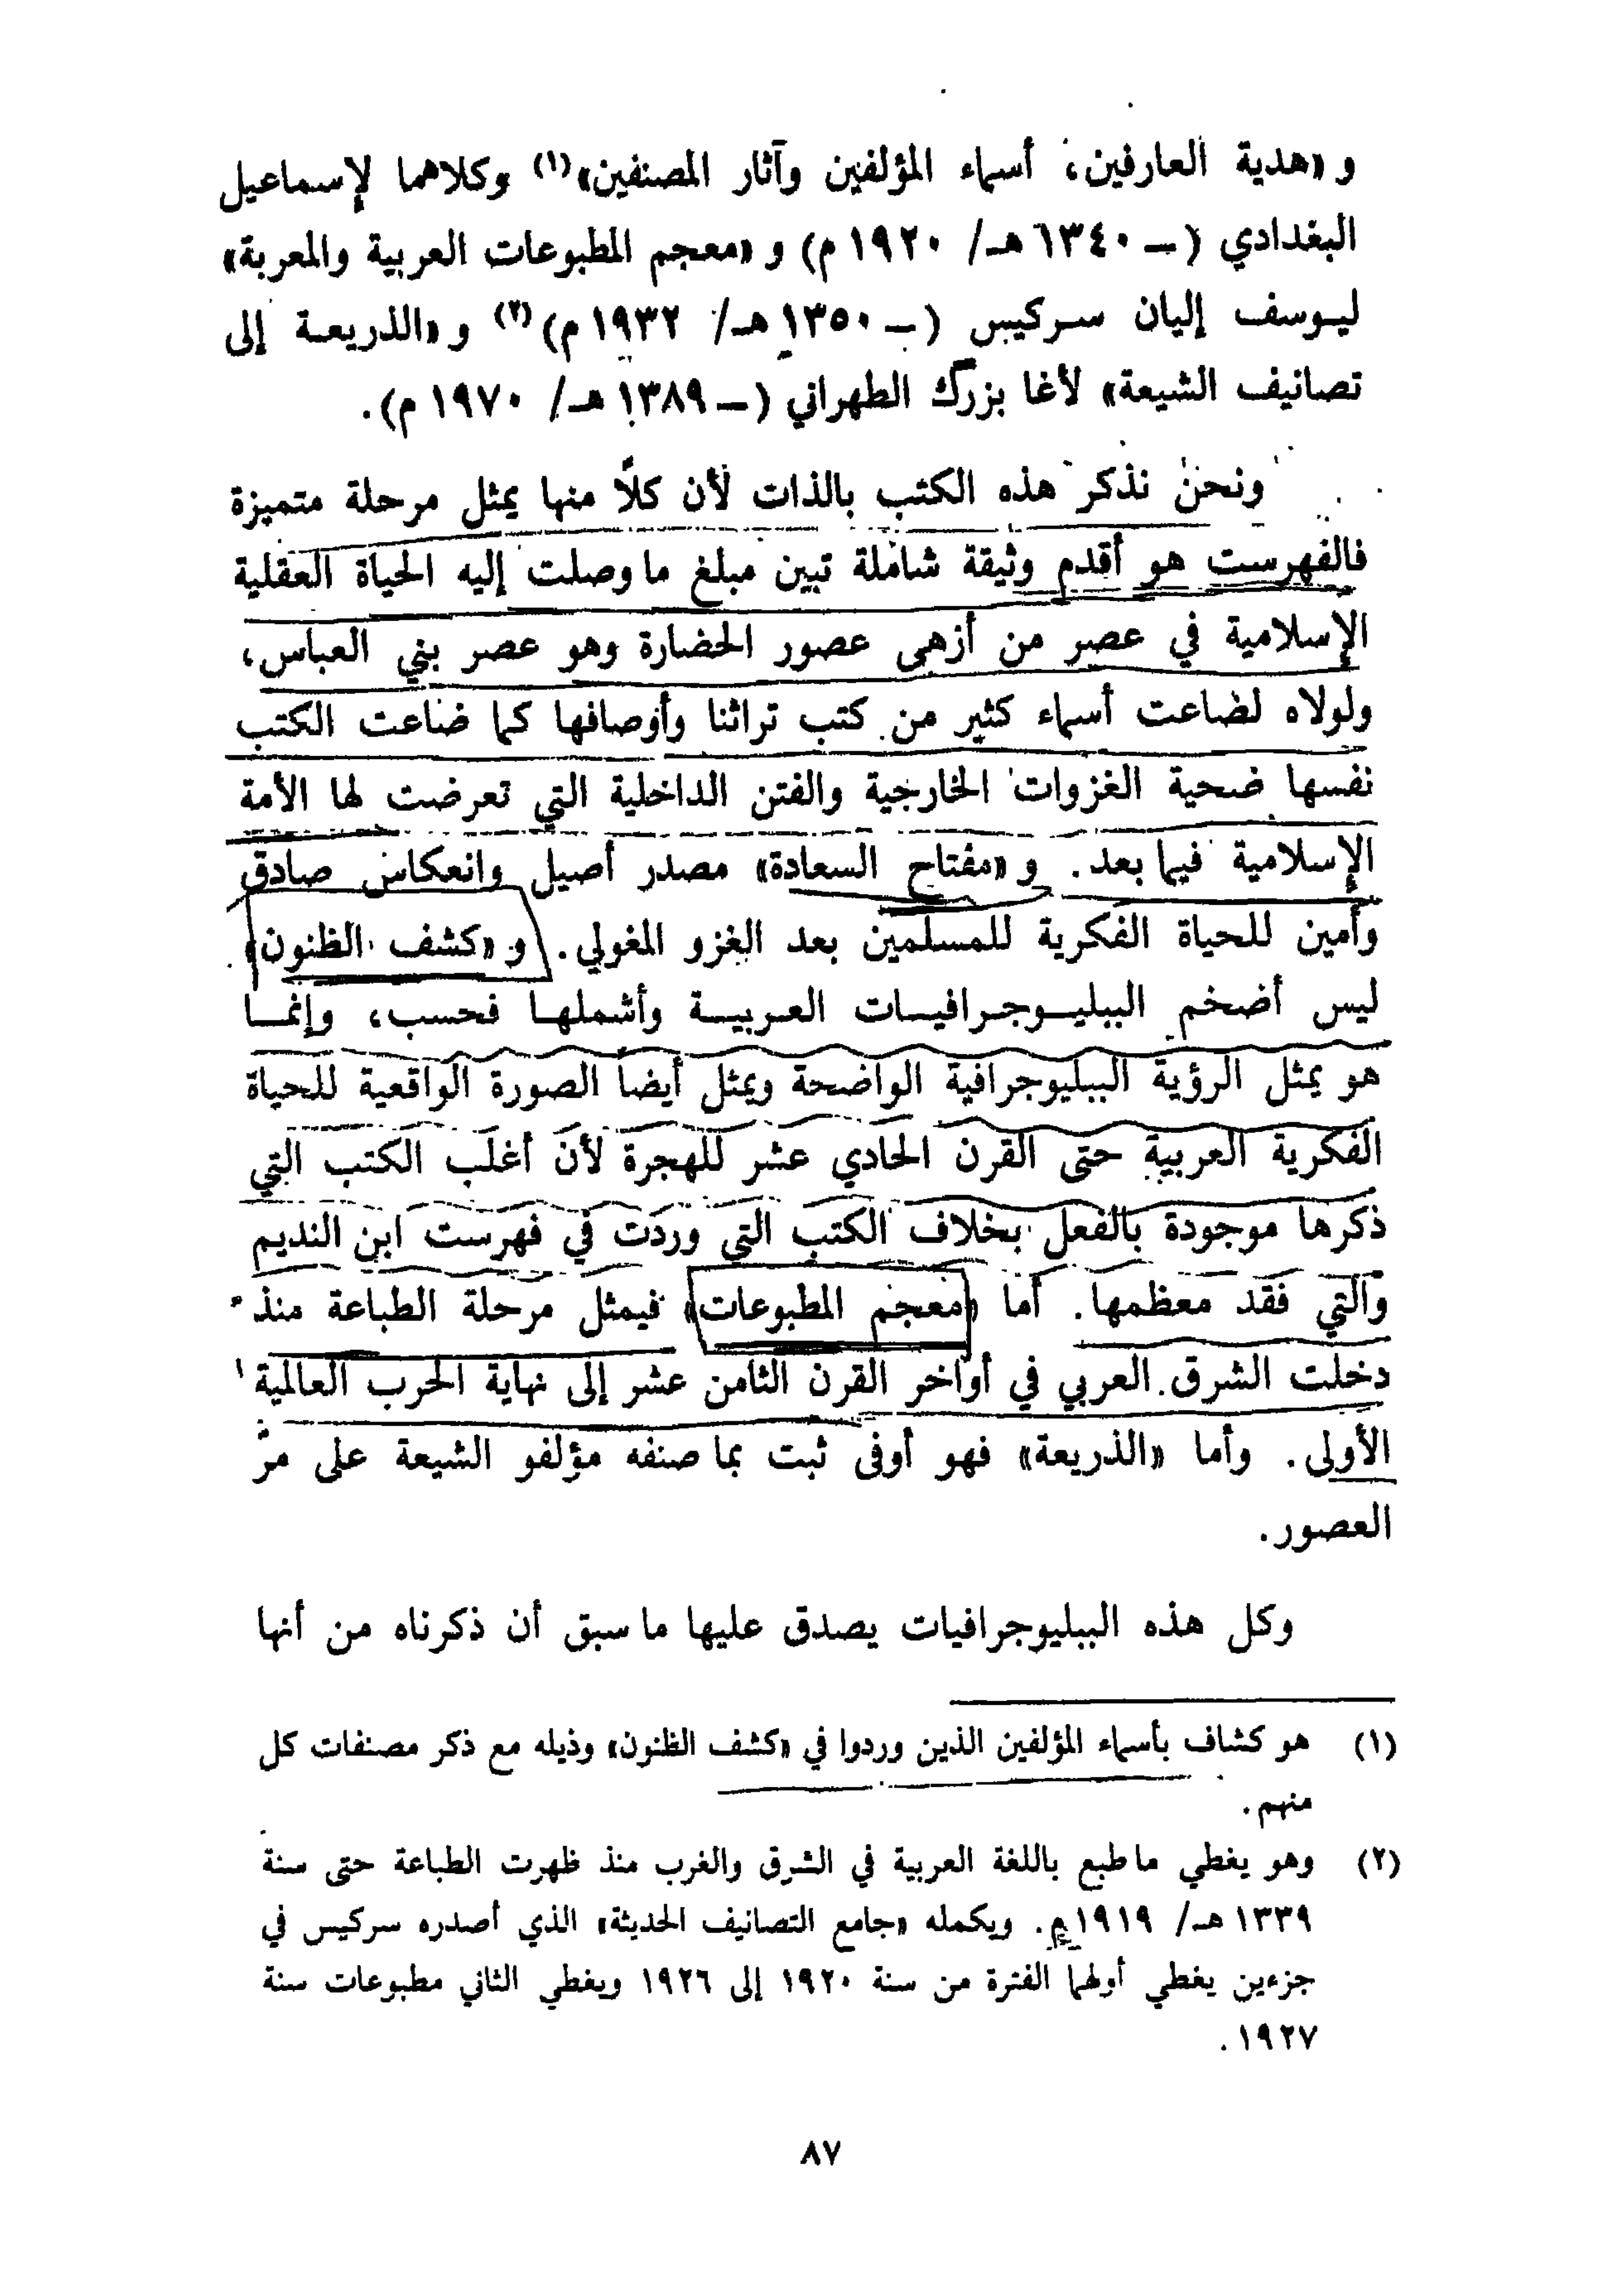 و «هدية العارفين، أسماء المؤلفين وآثار المصنفين»(١) وكلاهما لإسماعيل
البغدادي (ــ ١٣٤٠ هـ/ ١٩٢٠ م) و «معجم المطبوعات العربية والمعربة»
ليوسف إليان سركيس (ــ ١٣٥٠ هـ/ ١٩٣٢ م)(٢) و «الذريعة إلى
تصانيف الشيعة» لأغا بزرگ الطهراني (ــ ١٣٨٩ هـ/ ١٩٧٠ م).
ونحن نذكر هذه الكتب بالذات لأن كلاً منها يمثل مرحلة متميزة
فالفهرست هو أقدم وثيقة شاملة تبين مبلغ ما وصلت إليه الحياة العقلية
الإسلامية في عصر من أزهى عصور الحضارة وهو عصر بني العباس،
ولولاه لضاعت أسماء كثير من كتب تراثنا وأوصافها كما ضاعت الكتب
نفسها ضحية الغزوات الخارجية والفتن الداخلية التي تعرضت لها الأمة
الإسلامية فيما بعد. و «مفتاح السعادة» مصدر أصيل وانعكاس صادق
وأمين للحياة الفكرية للمسلمين بعد الغزو المغولي. و «كشف الظنون»
ليس أضخم الببليوجرافيات العربية وأشملها فحسب، وإنما
هو يمثل الرؤية الببليوجرافية الواضحة ويمثل أيضاً الصورة الواقعية للحياة
الفكرية العربية حتى القرن الحادي عشر للهجرة لأن أغلب الكتب التي
ذكرها موجودة بالفعل بخلاف الكتب التي وردت في فهرست ابن النديم
والتي فقد معظمها. أما «معجم المطبوعات» فيمثل مرحلة الطباعة منذ
دخلت الشرق العربي في أواخر القرن الثامن عشر إلى نهاية الحرب العالمية
الأولى. وأما «الذريعة» فهو أوفى ثبت بما صنفه مؤلفو الشيعة على مرّ
العصور.
وكل هذه الببليوجرافيات يصدق عليها ما سبق أن ذكرناه من أنها
(١) هو كشاف بأسماء المؤلفين الذين وردوا في «كشف الظنون» وذيله مع ذكر مصنفات كل
منهم.
(٢) وهو يغطي ما طبع باللغة العربية في الشرق والغرب منذ ظهرت الطباعة حتى سنة
١٣٣٩ هـ/ ١٩١٩ م. ويكمله «جامع التصانيف الحديثة» الذي أصدره سركيس في
جزءين يغطي أولهما الفترة من سنة ١٩٢٠ إلى ١٩٢٦ ويغطي الثاني مطبوعات سنة
١٩٢٧.
٨٧